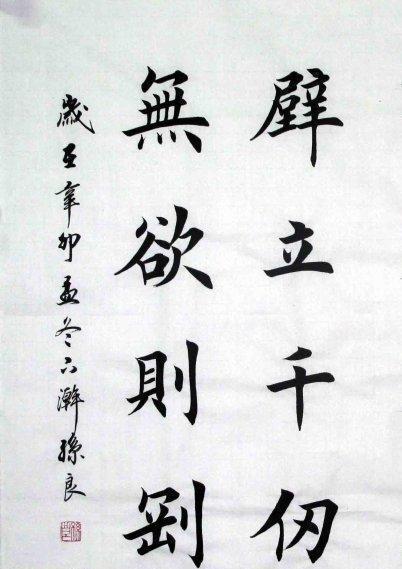 壁立千仞
無欲則剛
歲在辛卯孟冬瀚孫良